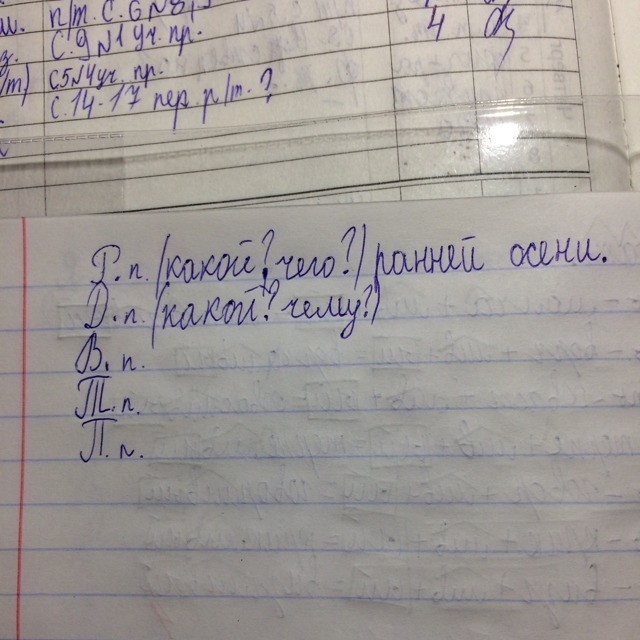 п/т. с. 6 №8,
с. 9 №1 уч. пр.
4
с5№4уч. пр.
с. 14-17 пер. р/т. ?
Р. п. (какой? чего?) ранней осени.
Д. п. (какой? чему?)
В. п.
Т. п.
П. п.